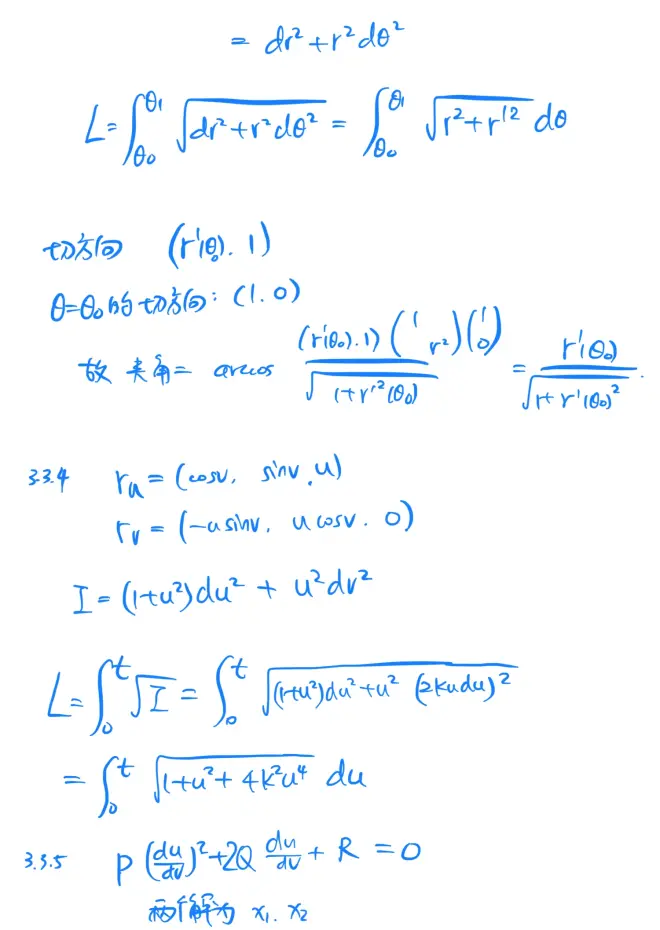 = dr²+r²dθ²
L=∫_{θ₀}^{θ₁} √(dr²+r²dθ²) = ∫_{θ₀}^{θ₁} √(r²+r'²) dθ
切方向 (r'(θ₀). 1)
θ=θ₀的切方向: (1. 0)
故 夹角= arccos ((r'(θ₀). 1) (1 r²)(1 0))/√(1+r'²(θ₀)) = r'(θ₀)/√(1+r'(θ₀)²).
3.3.4 r_u = (cosv, sinv, u)
r_v = (-u sinv, u cosv. 0)
I = (1+u²)du² + u²dv²
L=∫₀ᵗ √I = ∫₀ᵗ √((1+u²)du²+u² (2kudu)²)
= ∫₀ᵗ √(1+u²+4k²u⁴) du
3.3.5 P (du/dv)²+2Q du/dv + R = 0
两个解为 x₁. x₂